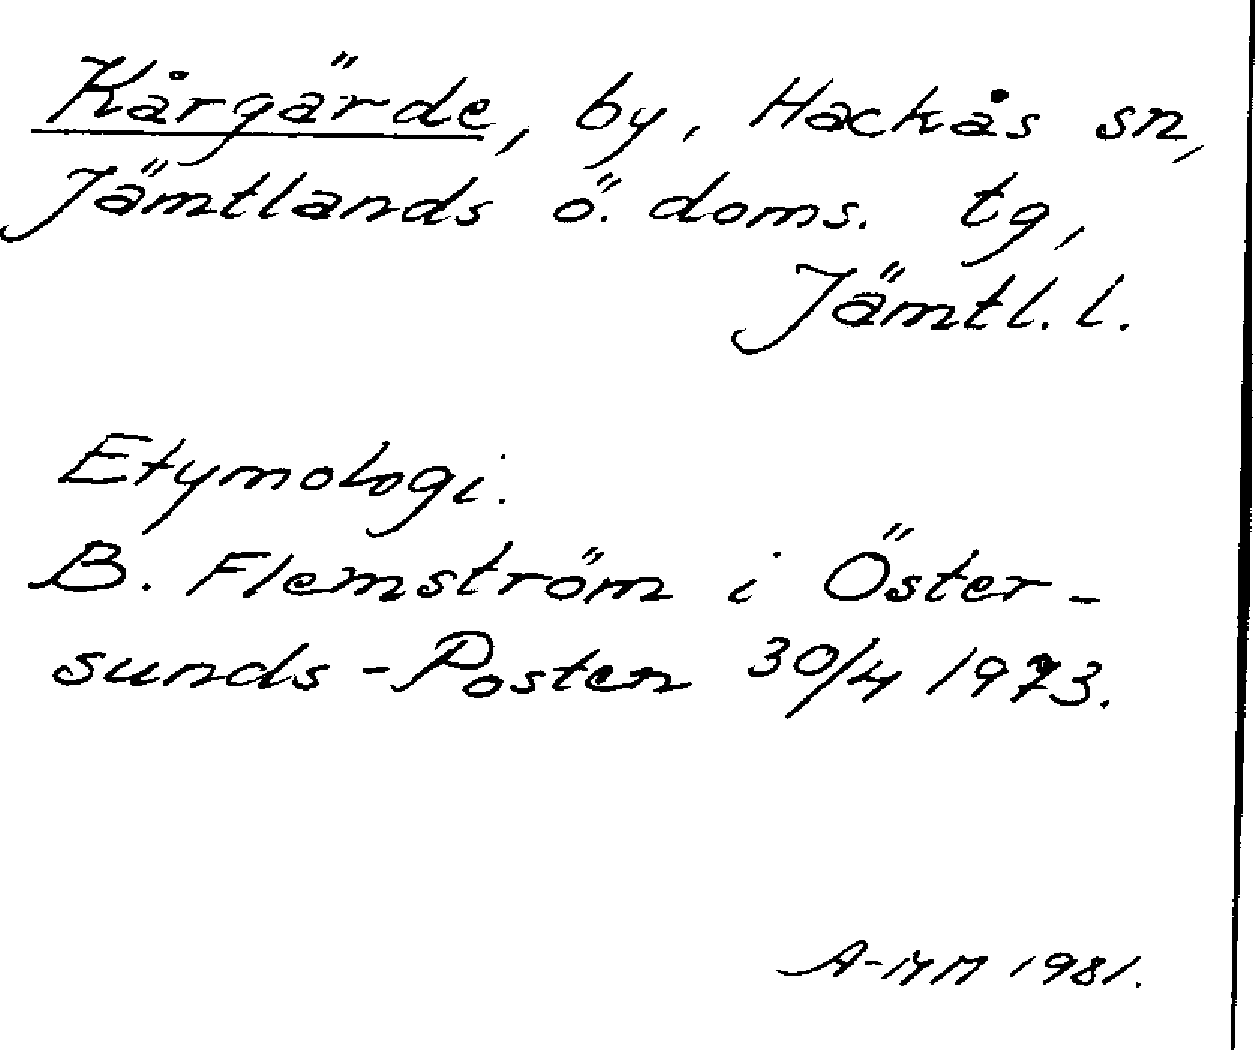 Kårgärde, by, Hackås sn,
Jämtlands ö. doms. tg,
Jämtl. l.
Etymologi.
B. Flemström i Öster-
sunds-Posten 30/4 1973.
1981.